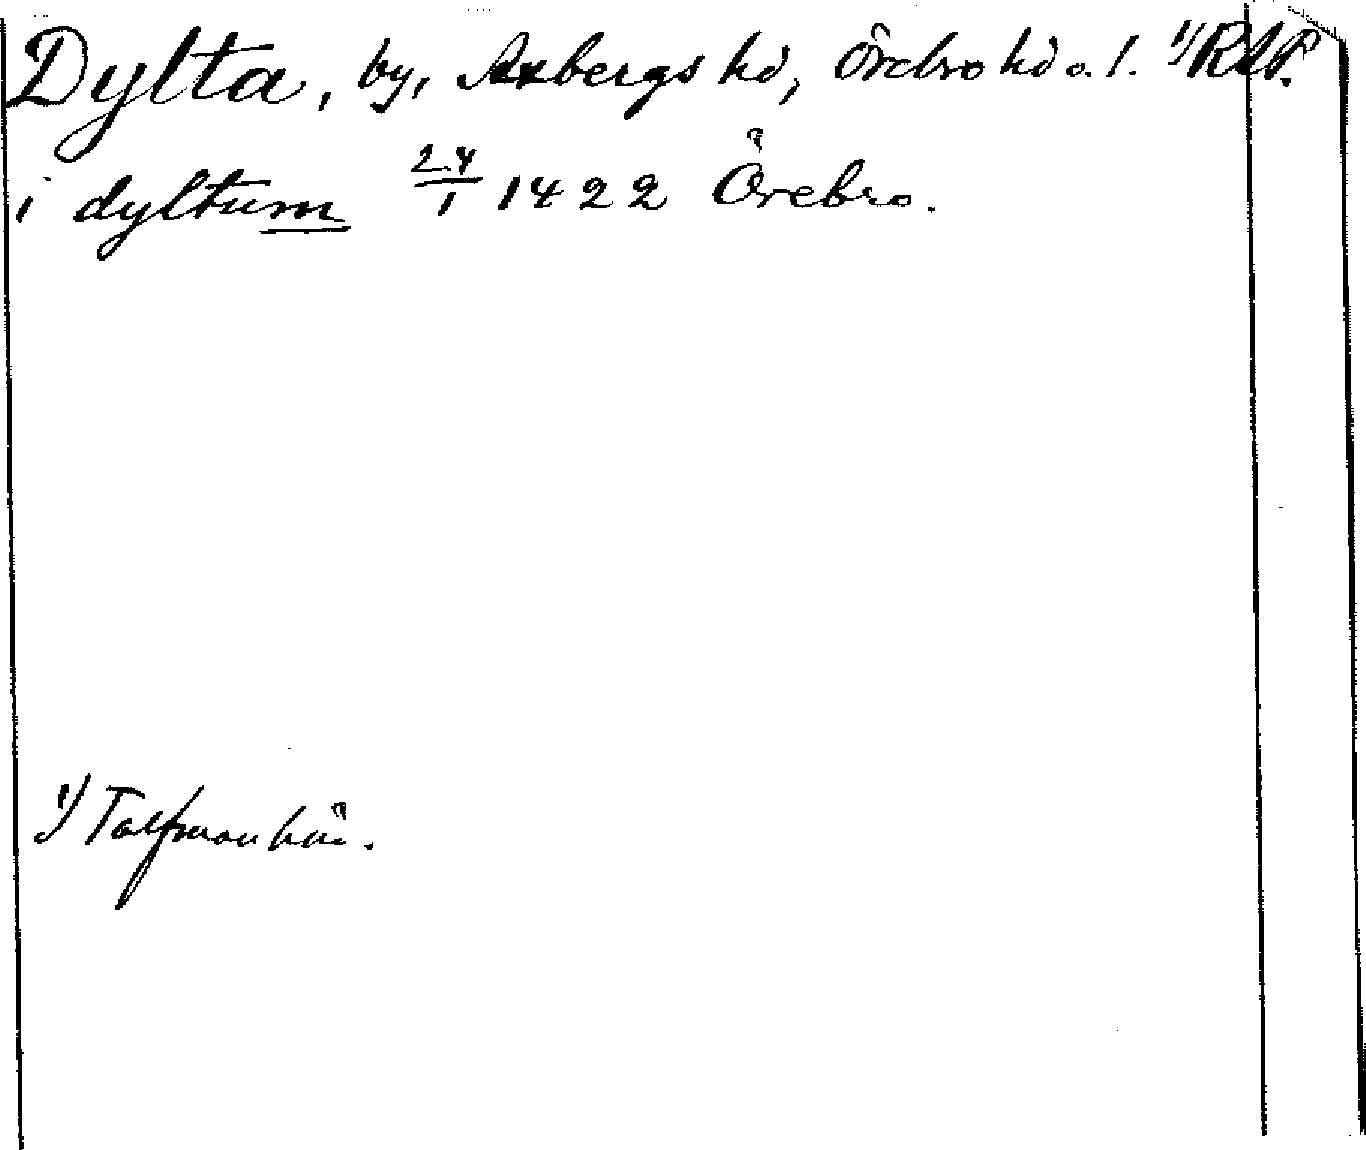 Dylta, by, Axbergs hd, Örebro hd o. l. 1) RAP.
i dyltum 24/1 1422 Örebro.
1)